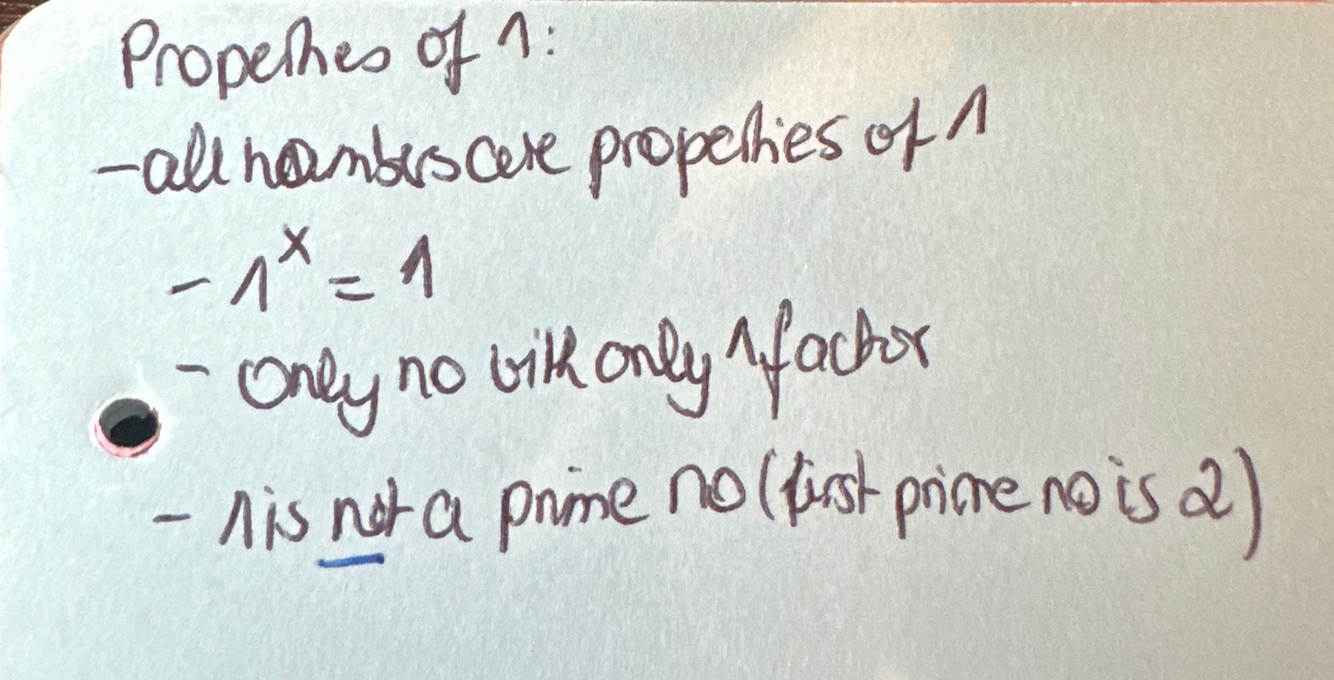 Properties of 1:
- all numbers are properties of 1
- 1ˣ = 1
- Only no with only 1 factor
- 1 is not a prime no (first prime no is 2)